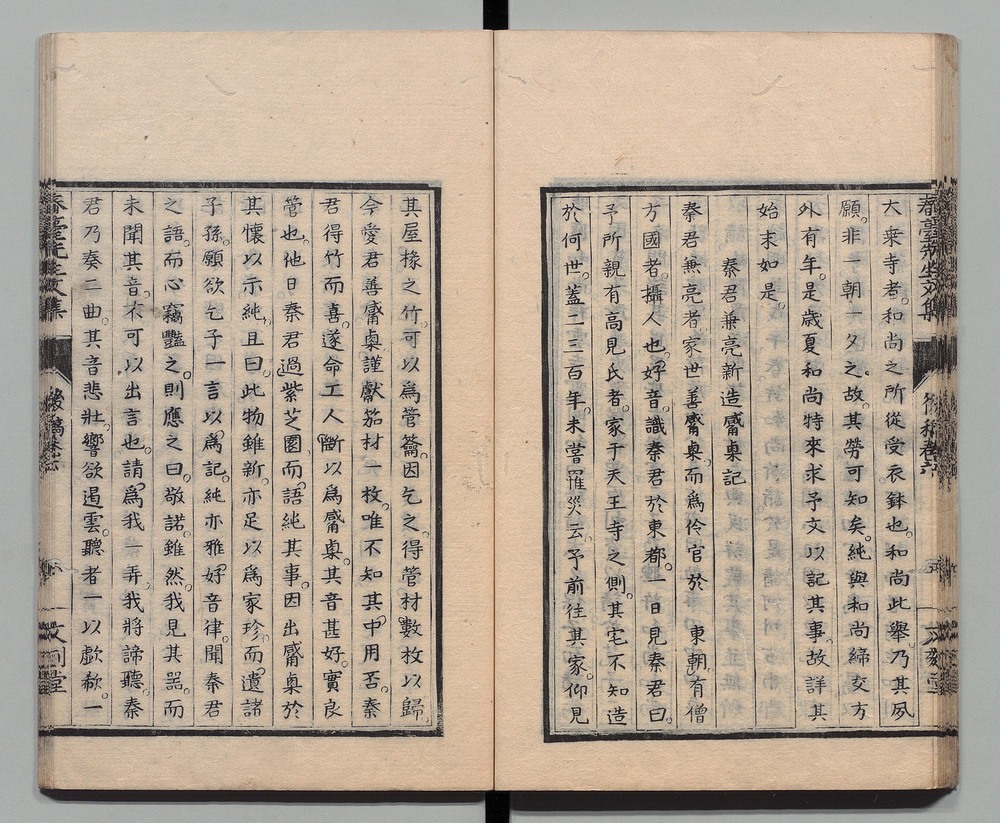 大衆寺者。和尚之所從受衣鉢也。和尚此舉。乃其夙
願。非一朝一夕之故。其勞可知矣。純與和尚締交方
外有年。是歲夏和尚特來求予文以記其事。故詳其
始末如是。
秦君兼亮新造觱篥記
秦君兼亮者。家世善觱篥。而爲伶官於 東朝。有僧
方國者。攝人也。好音。識秦君於東都。一日見秦君曰。
予所親有高見氏者。家于天王寺之側。其宅不知造
於何世。蓋二三百年。未嘗罹災云。予前往其家。仰見
其屋椽之竹。可以爲管籥。因乞之。得管材數枚以歸。
今愛君善觱篥。謹獻笳材一枚。唯不知其中用否。秦
君得竹而喜。遂命工人斷以爲觱篥。其音甚好。實良
管也。他日秦君過紫芝園。而語純其事。因出觱篥於
其懷以示純。且曰。此物雖新。亦足以爲家珍。而遺諸
子孫。願欲乞子一言以爲記。純亦雅好音律。聞秦君
之語。而心竊豔之。則應之曰。敬諾。雖然。我見其器。而
未聞其音。不可以出言也。請爲我一弄。我將諦聽。秦
君乃奏二曲。其音悲壯。響欲遏雲。聽者一以歔欷。一
春臺先生文集
後稿卷六